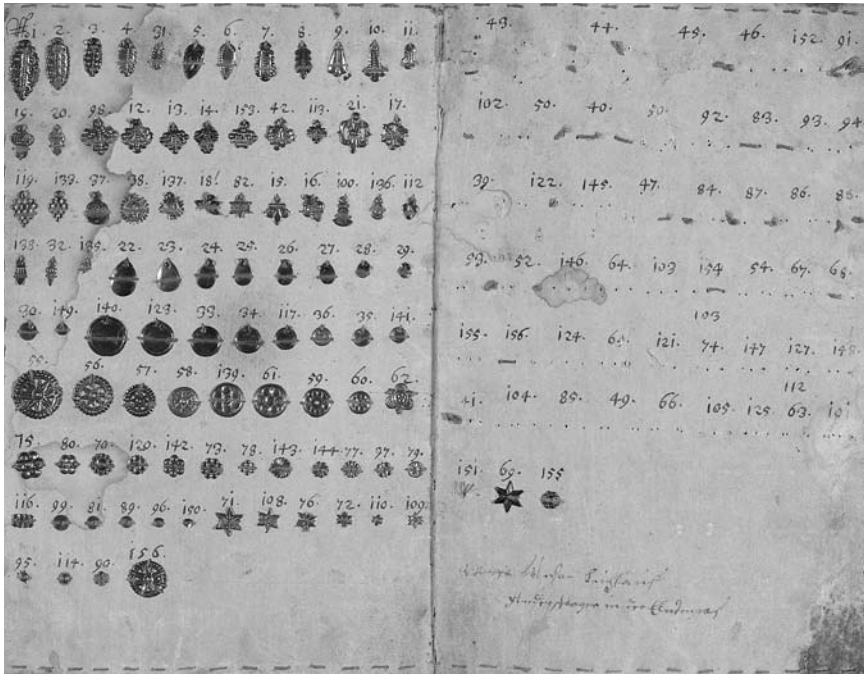 1. 2. 3. 4. 31. 5. 6. 7. 8. 9. 10. 11.
19. 20. 98. 12. 13. 14. 153. 42. 113. 21. 17.
119. 133. 37. 38. 137. 18. 82. 15. 16. 100. 136. 112
138. 32. 135. 22. 23. 24. 25. 26. 27. 28. 29.
30. 149. 140. 123. 33. 34. 117. 36. 35. 141.
55. 56. 57. 58. 139. 61. 59. 60. 62.
75. 80. 70. 120. 142. 73. 78. 143. 144. 77. 97. 79.
116. 99. 81. 89. 96. 150. 71. 108. 76. 72. 110. 109.
95. 114. 90. 156.
43. 44. 45. 46. 152. 91.
102. 50. 40. 50. 92. 83. 93. 94
39. 122. 145. 47. 84. 87. 86.
53. 52. 146. 64. 103 154 54. 67. 68.
103
155. 156. 124. 121. 74. 147 127. 148
112
41. 104. 85. 49. 66. 105. 125. 63. 101
151. 69. 155